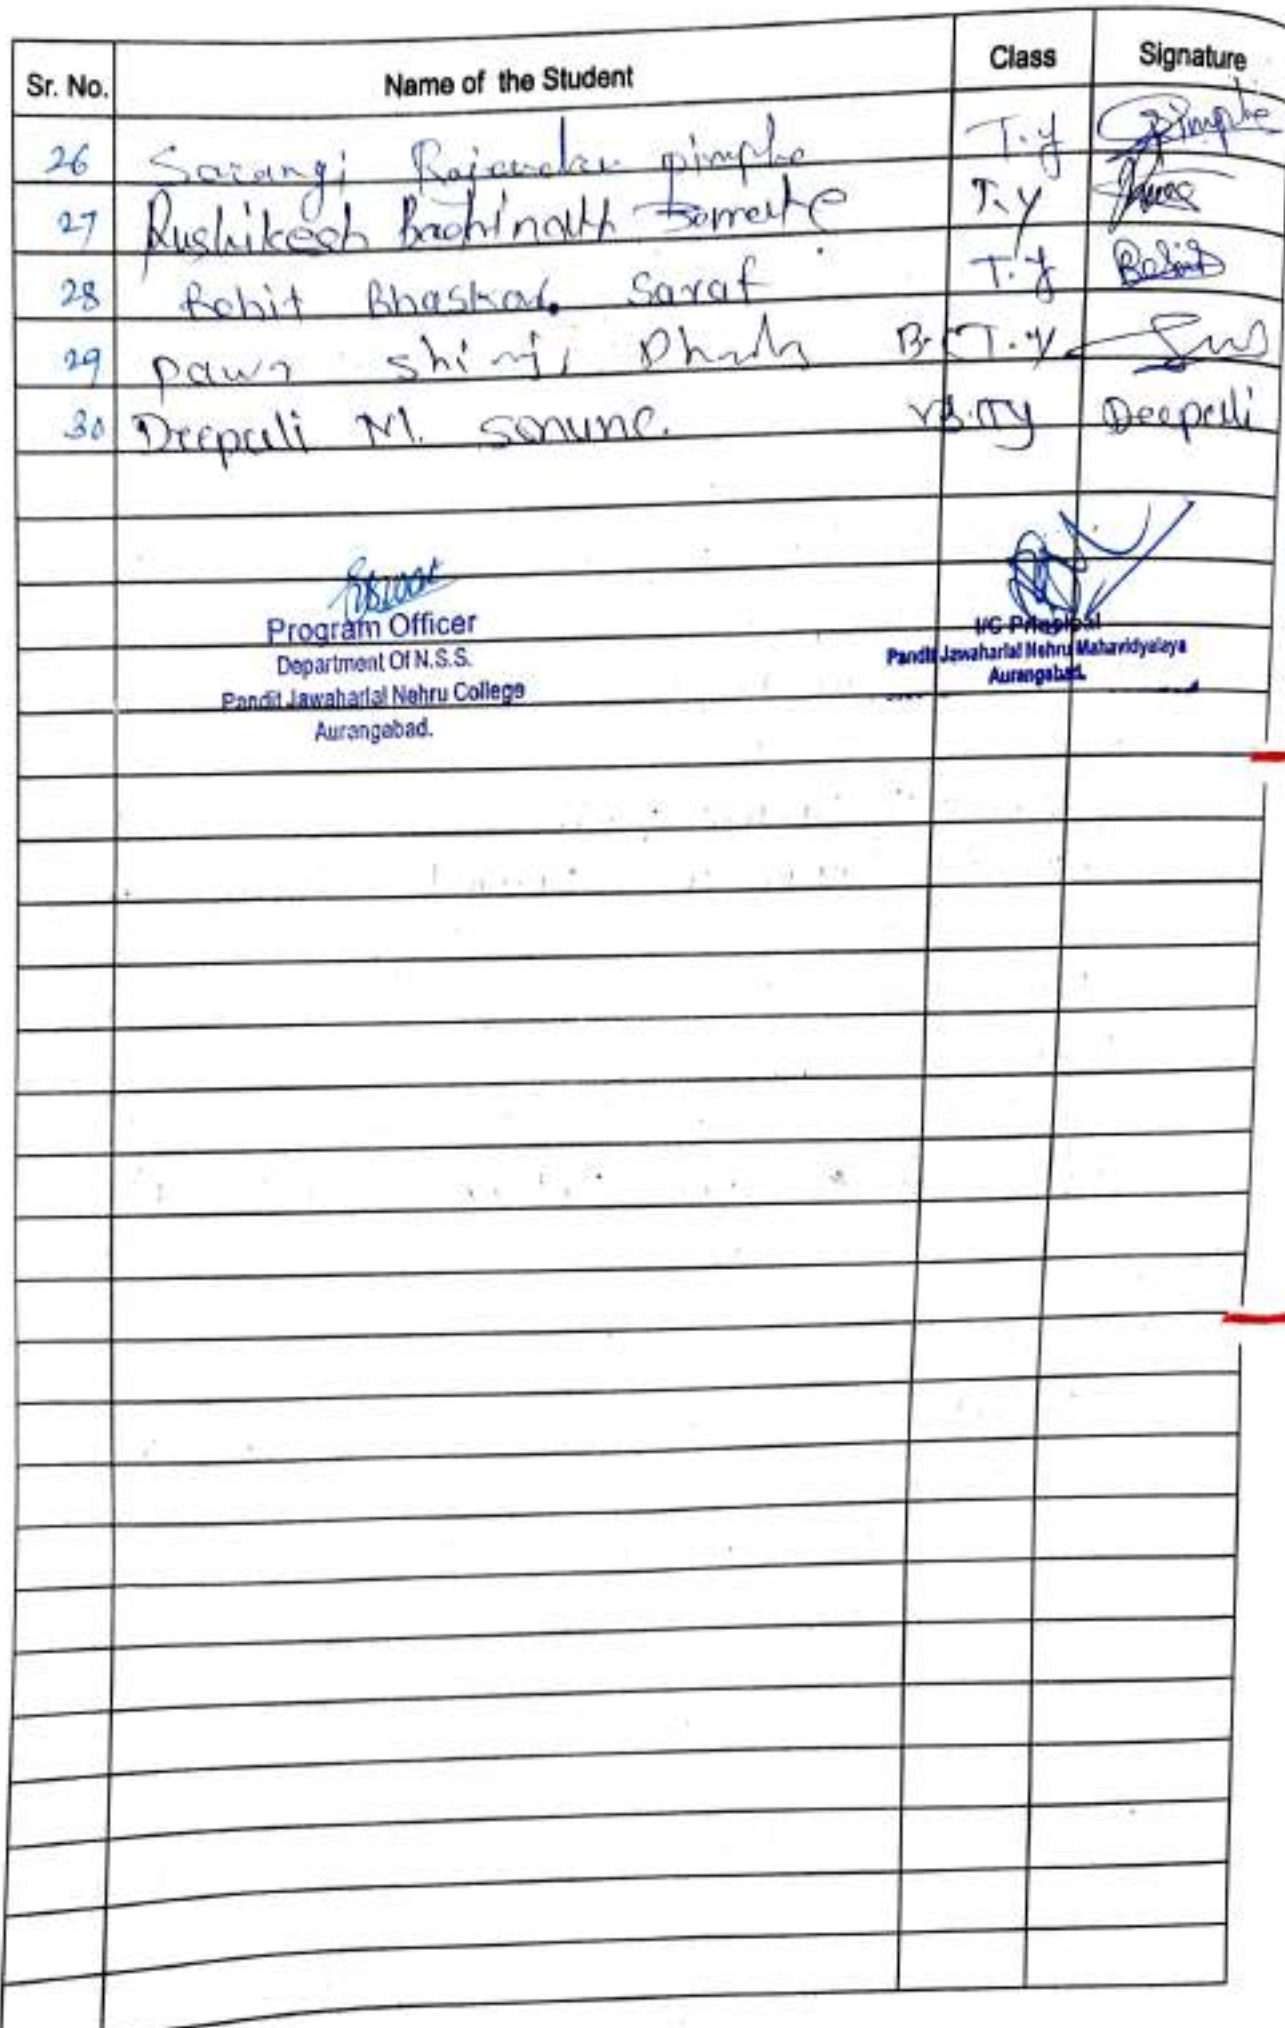 Sr. No. Name of the Student Class Signature
26 Sarangi Rajendra pimple T.Y Pimple
27 Rushikesh Badrinath T.Y
28 Rohit Bhaskar Saraf T.Y Rohit
29 Pawn T.Y
30 Deepali M. sonune. Deepali
Program Officer
Department Of N.S.S.
Pandit Jawaharlal Nehru College
Aurangabad.
I/C Principal
Pandit Jawaharlal Nehru Mahavidyalaya
Aurangabad.